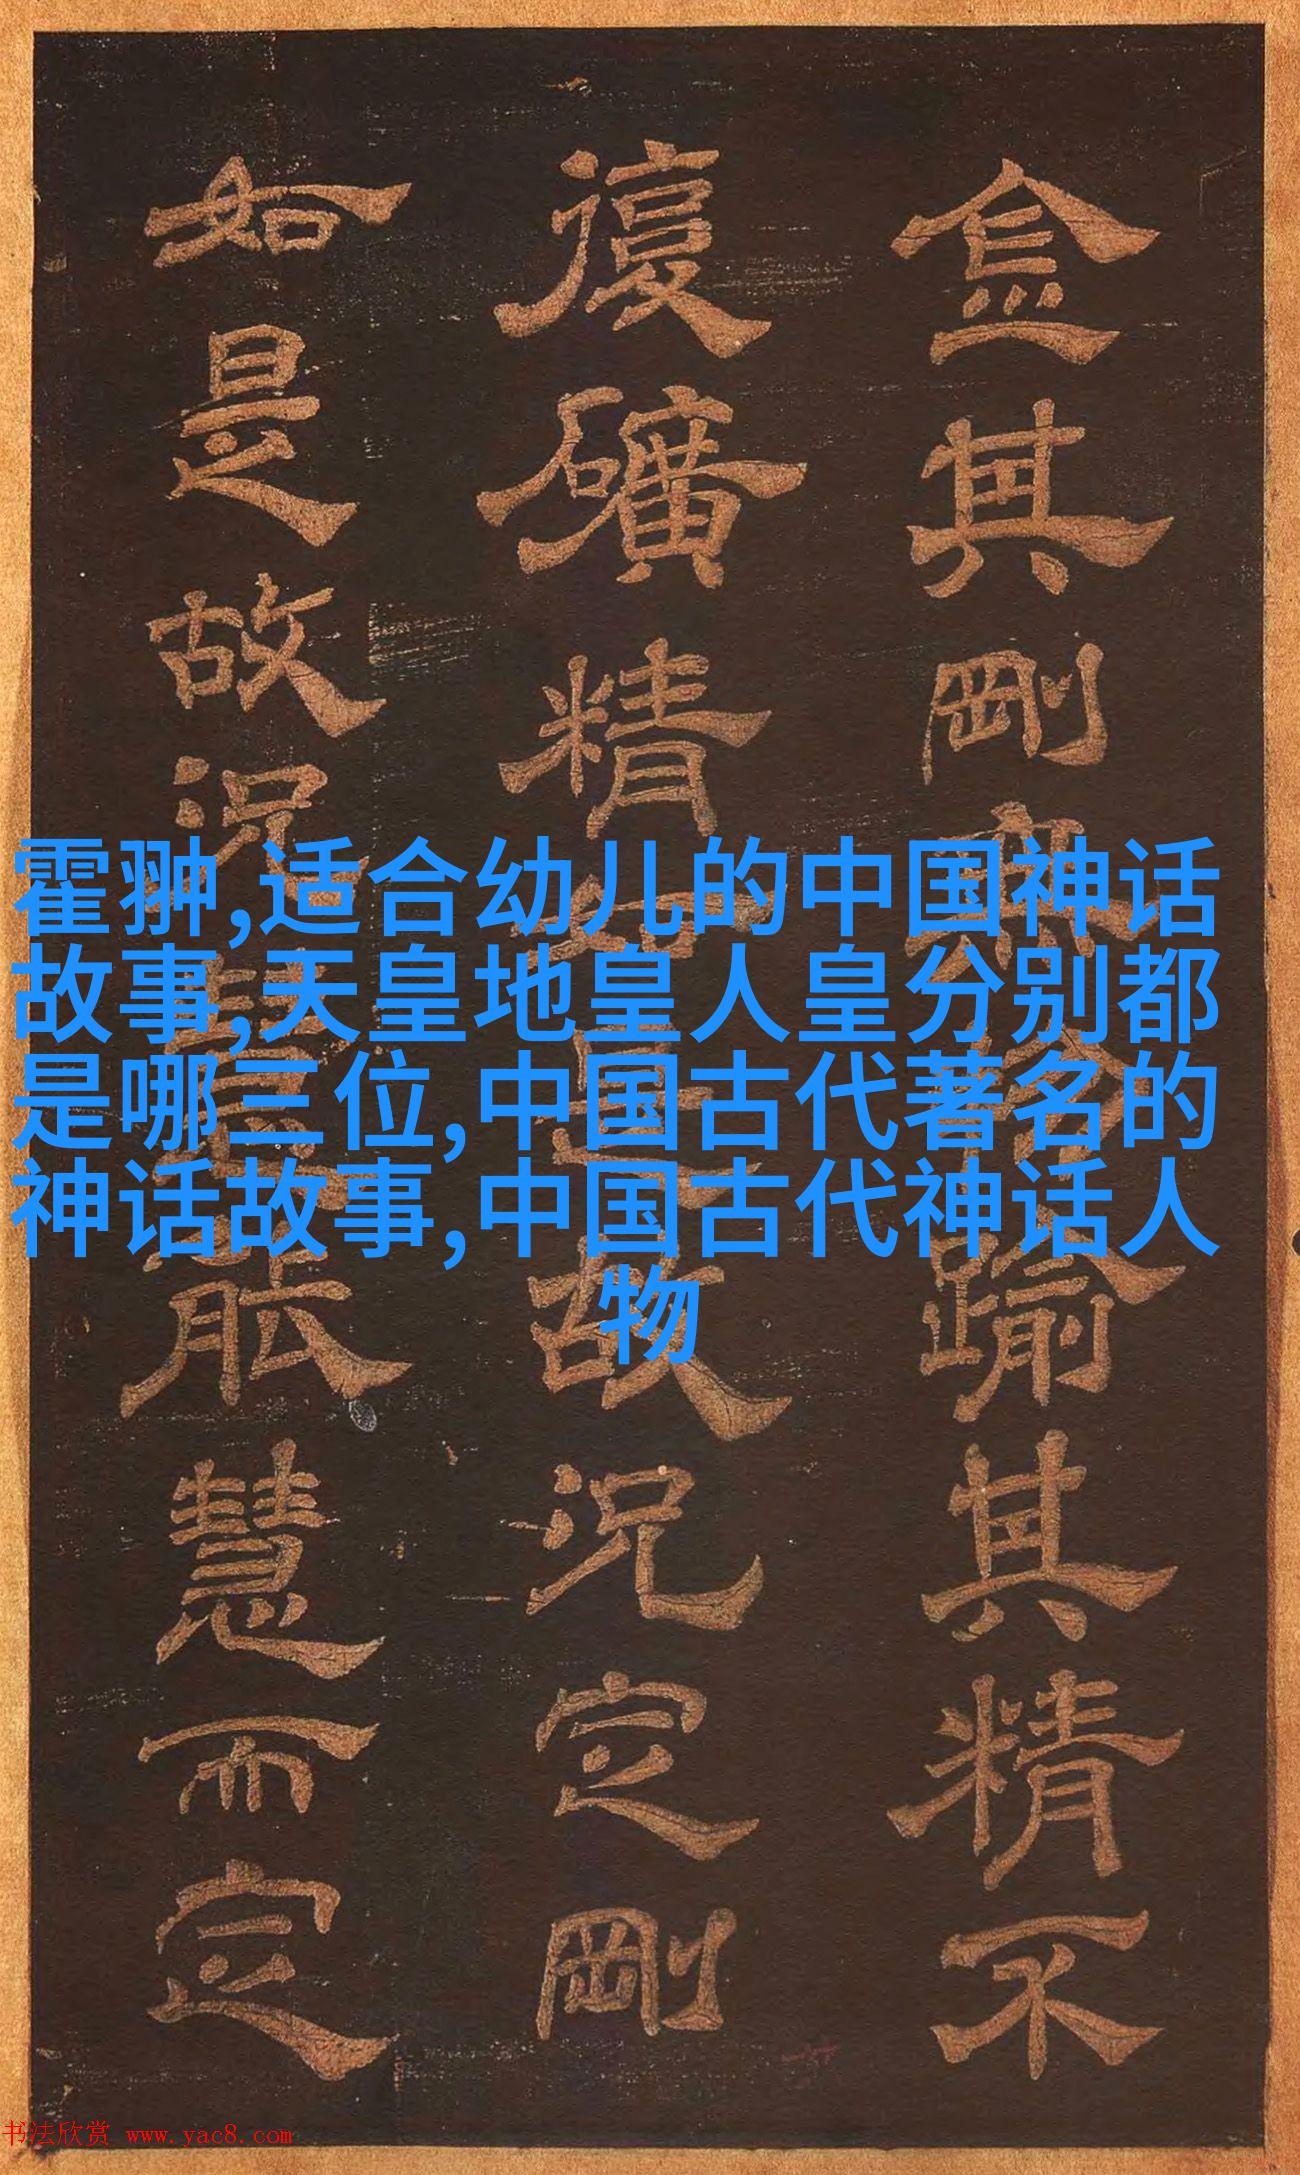 金其剛*踰其精不
復礦精*故況定剛
如是故況*慧而定
霍翀,适合幼儿的中国神话
故事,天皇地皇人皇分别都
是哪三位,中国古代著名的
神话故事,中国古代神话人
物
书法欣赏 www.yac8.com